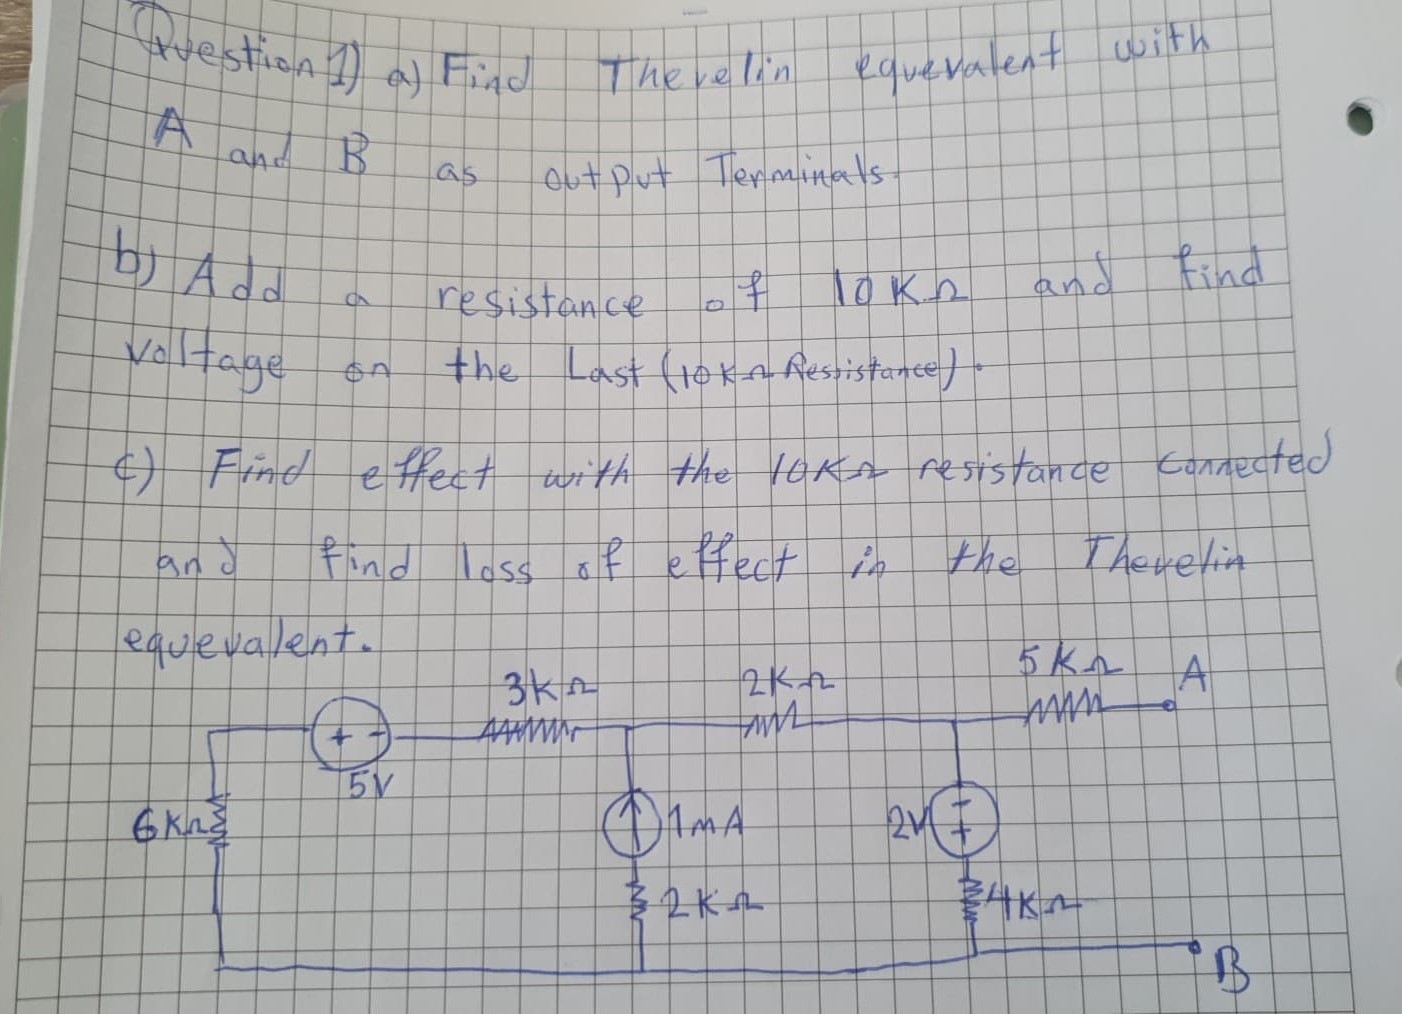 Question 1) a) Find Thevelin equevalent with
A and B as output Terminals
b) Add a resistance of 10KΩ and find
voltage on the Last (10KΩ Ressistance).
c) Find effect with the 10KΩ resistance connected
and find loss of effect in the Thevelin
equevalent.
3KΩ 2KΩ 5KΩ A
+ -
5V
6KΩ 1mA 2V - +
2KΩ 4KΩ
B